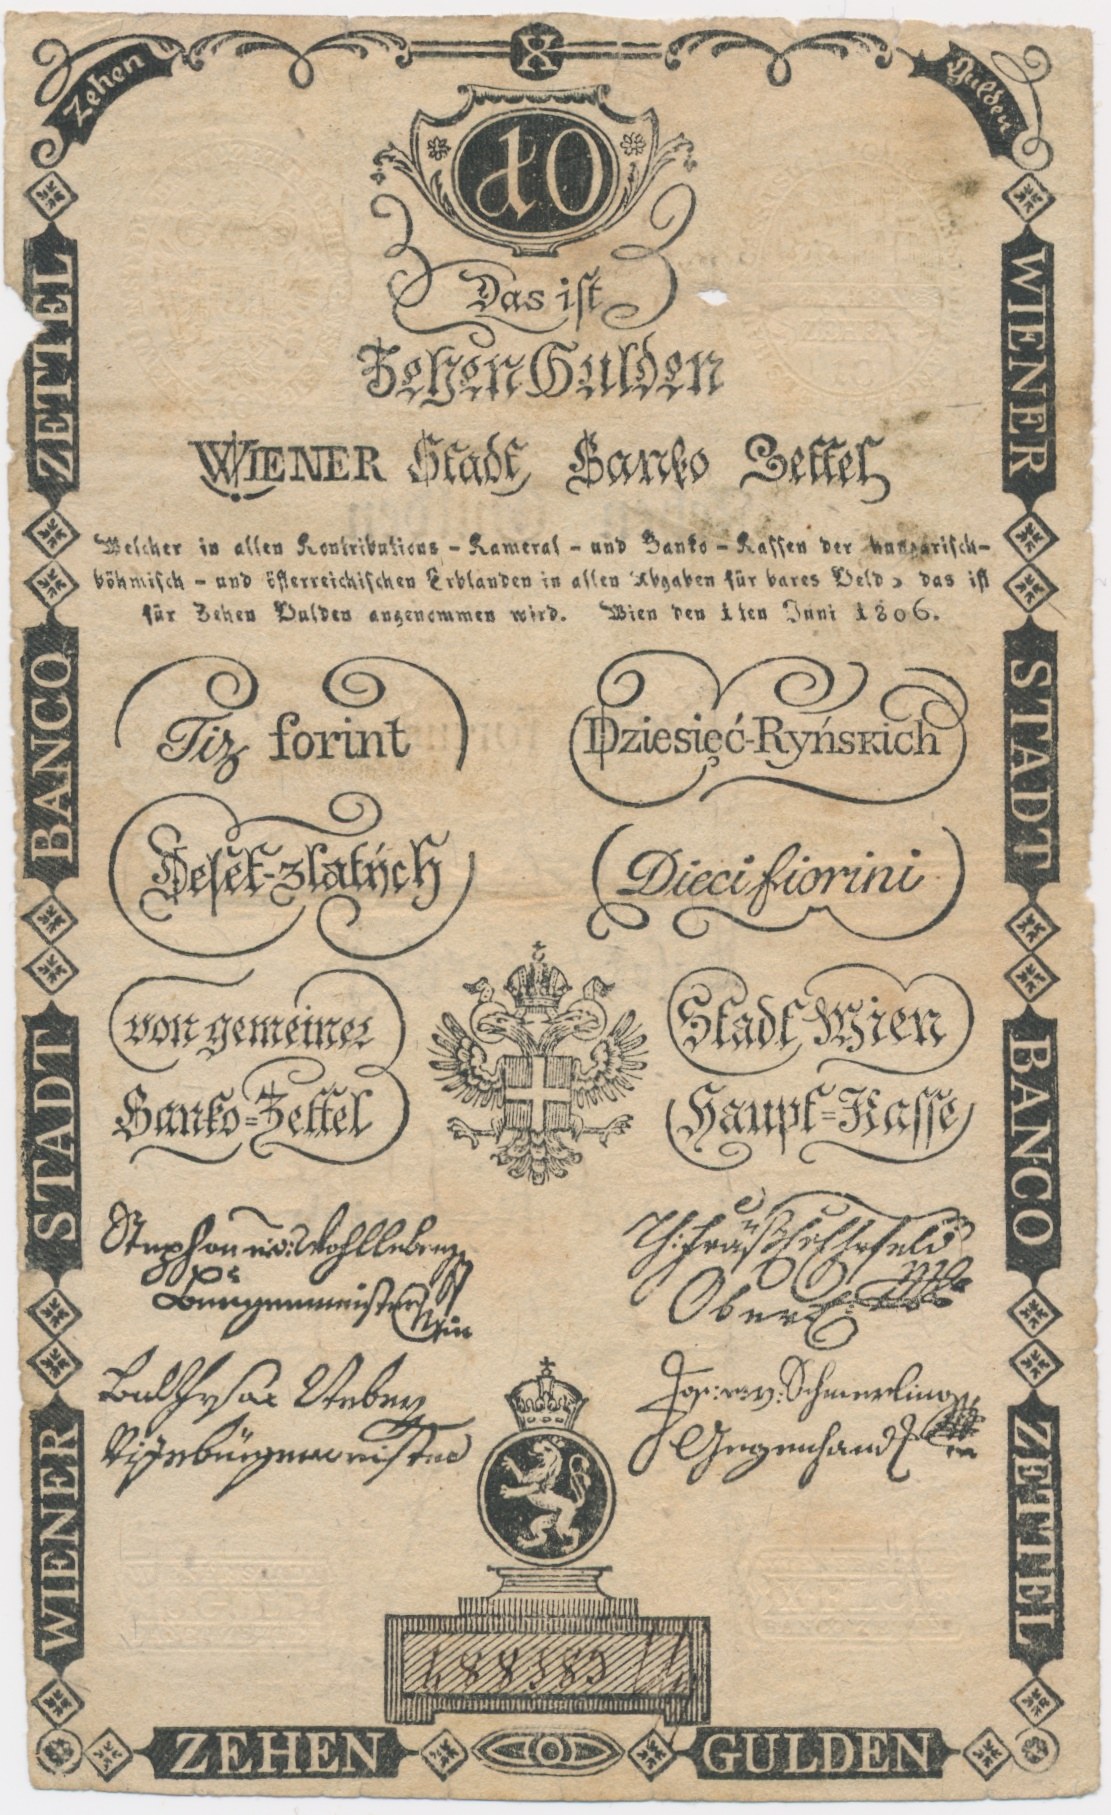 X
Zehen
Gulden
10
Das ist
Zehen Gulden
WIENER Stadt Banko Zettel
Welcher in allen Kontributions-Kameral-und Banko-Kassen der hungarisch-
böhmisch-und österreichischen Erblanden in allen Abgaben für bares Geld, das ist
für Zehen Gulden angenommen wird. Wien den 1ten Juni 1806.
Tiz forint
Dziesięć-Ryńskich
Deset-zlatých
Dieci fiorini
von gemeiner
Stadt Wien
Banko=Zettel
Haupt=Kasse
Stephan v: Wohlleben
Burgermeister
Wien
Ober
Balthasar Weber
Vizebürgermeister
Jos: v: Schmerling
Gegenhand
ZETTEL
BANCO
STADT
WIENER
WIENER
STADT
BANCO
ZETTEL
ZEHEN
GULDEN